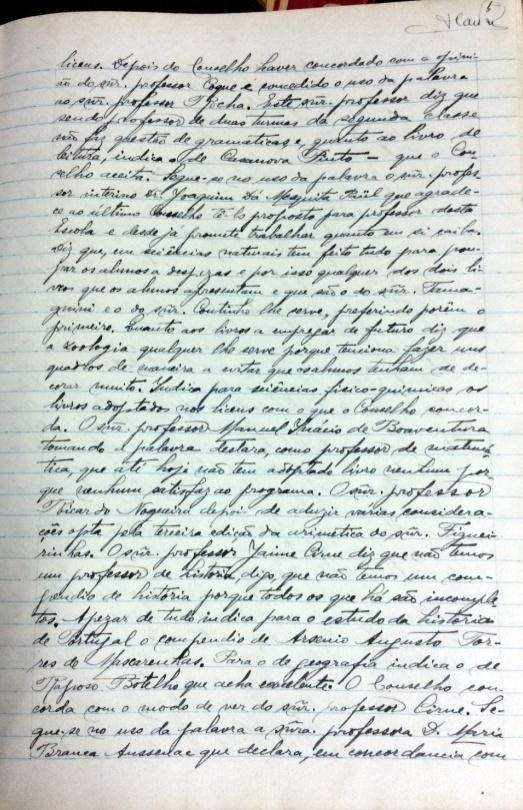 5
liceus. Depois do Conselho haver concordado com a opini-
ão do snr. professor Coque é concedido o uso da palavra
ao snr. professor Rocha. Este snr. professor diz que
sendo professor de duas turmas da segunda classe
não faz questão de gramáticas e, quanto ao livro de
leitura, indica o de Casanova Pinto — que o Con-
selho aceita. Segue-se no uso da palavra o snr. profes-
sor interino Dr. Joaquim Dá Mesquita Paül que agrade-
ce ao último Conselho tê-lo proposto para professor desta
Escola e desde já promete trabalhar quanto em si caiba.
Diz que, em sciências naturais tem feito tudo para pou-
par os alunos a despezas e por isso qualquer dos dois li-
vros que os alunos apresentam e que são o do snr. Tama-
gnini e o do snr. Coutinho lhe serve, preferindo porêm o
primeiro. Quanto aos livros a empregar de futuro diz que
a zoologia qualquer lhe serve porque tenciona fazer uns
quadros de maneira a evitar que os alunos tenham de de-
corar muito. Indica para sciências fisico-quimicas os
livros adoptados nos liceus com o que o Conselho concor-
da. O snr. professor Manuel Inácio de Boaventura
tomando a palavra declara, como professor de matemá-
tica, que até hoje não tem adoptado livro nenhum por-
que nenhum satisfaz ao programa. O snr. professor
Ricardo Nogueira depois de aduzir várias considera-
ções opta pela terceira edição da arimética do snr. Figuei-
rinhas. O snr. professor Jaime Cirne diz que não temos
um professor de história, digo, que não temos um com-
pendio de história porque todos os que há são incomple-
tos. Apezar de tudo indica para o estudo da história
de Portugal o compendio de Arsenio Augusto Tor-
res de Mascarenhas. Para o de geografia indica o de
Raposo Botelho que acha excelente. O Conselho con-
corda com o modo de ver do snr. professor Cirne. Se-
gue-se no uso da palavra a snra. professora D. Maria
Branca que declara, em concordancia com